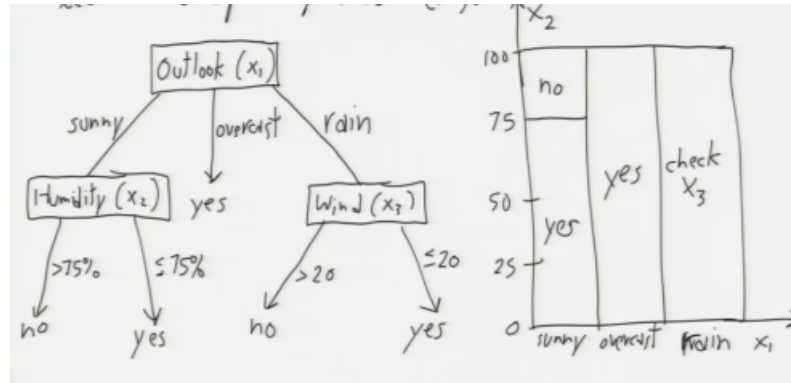 Outlook (x₁)
sunny
overcast
rain
Humidity (x₂)
yes
Wind (x₃)
>75%
≤75%
>20
≤20
no
yes
no
yes
x₂
100
75
50
25
0
no
yes
yes
check
x₃
sunny overcast rain x₁